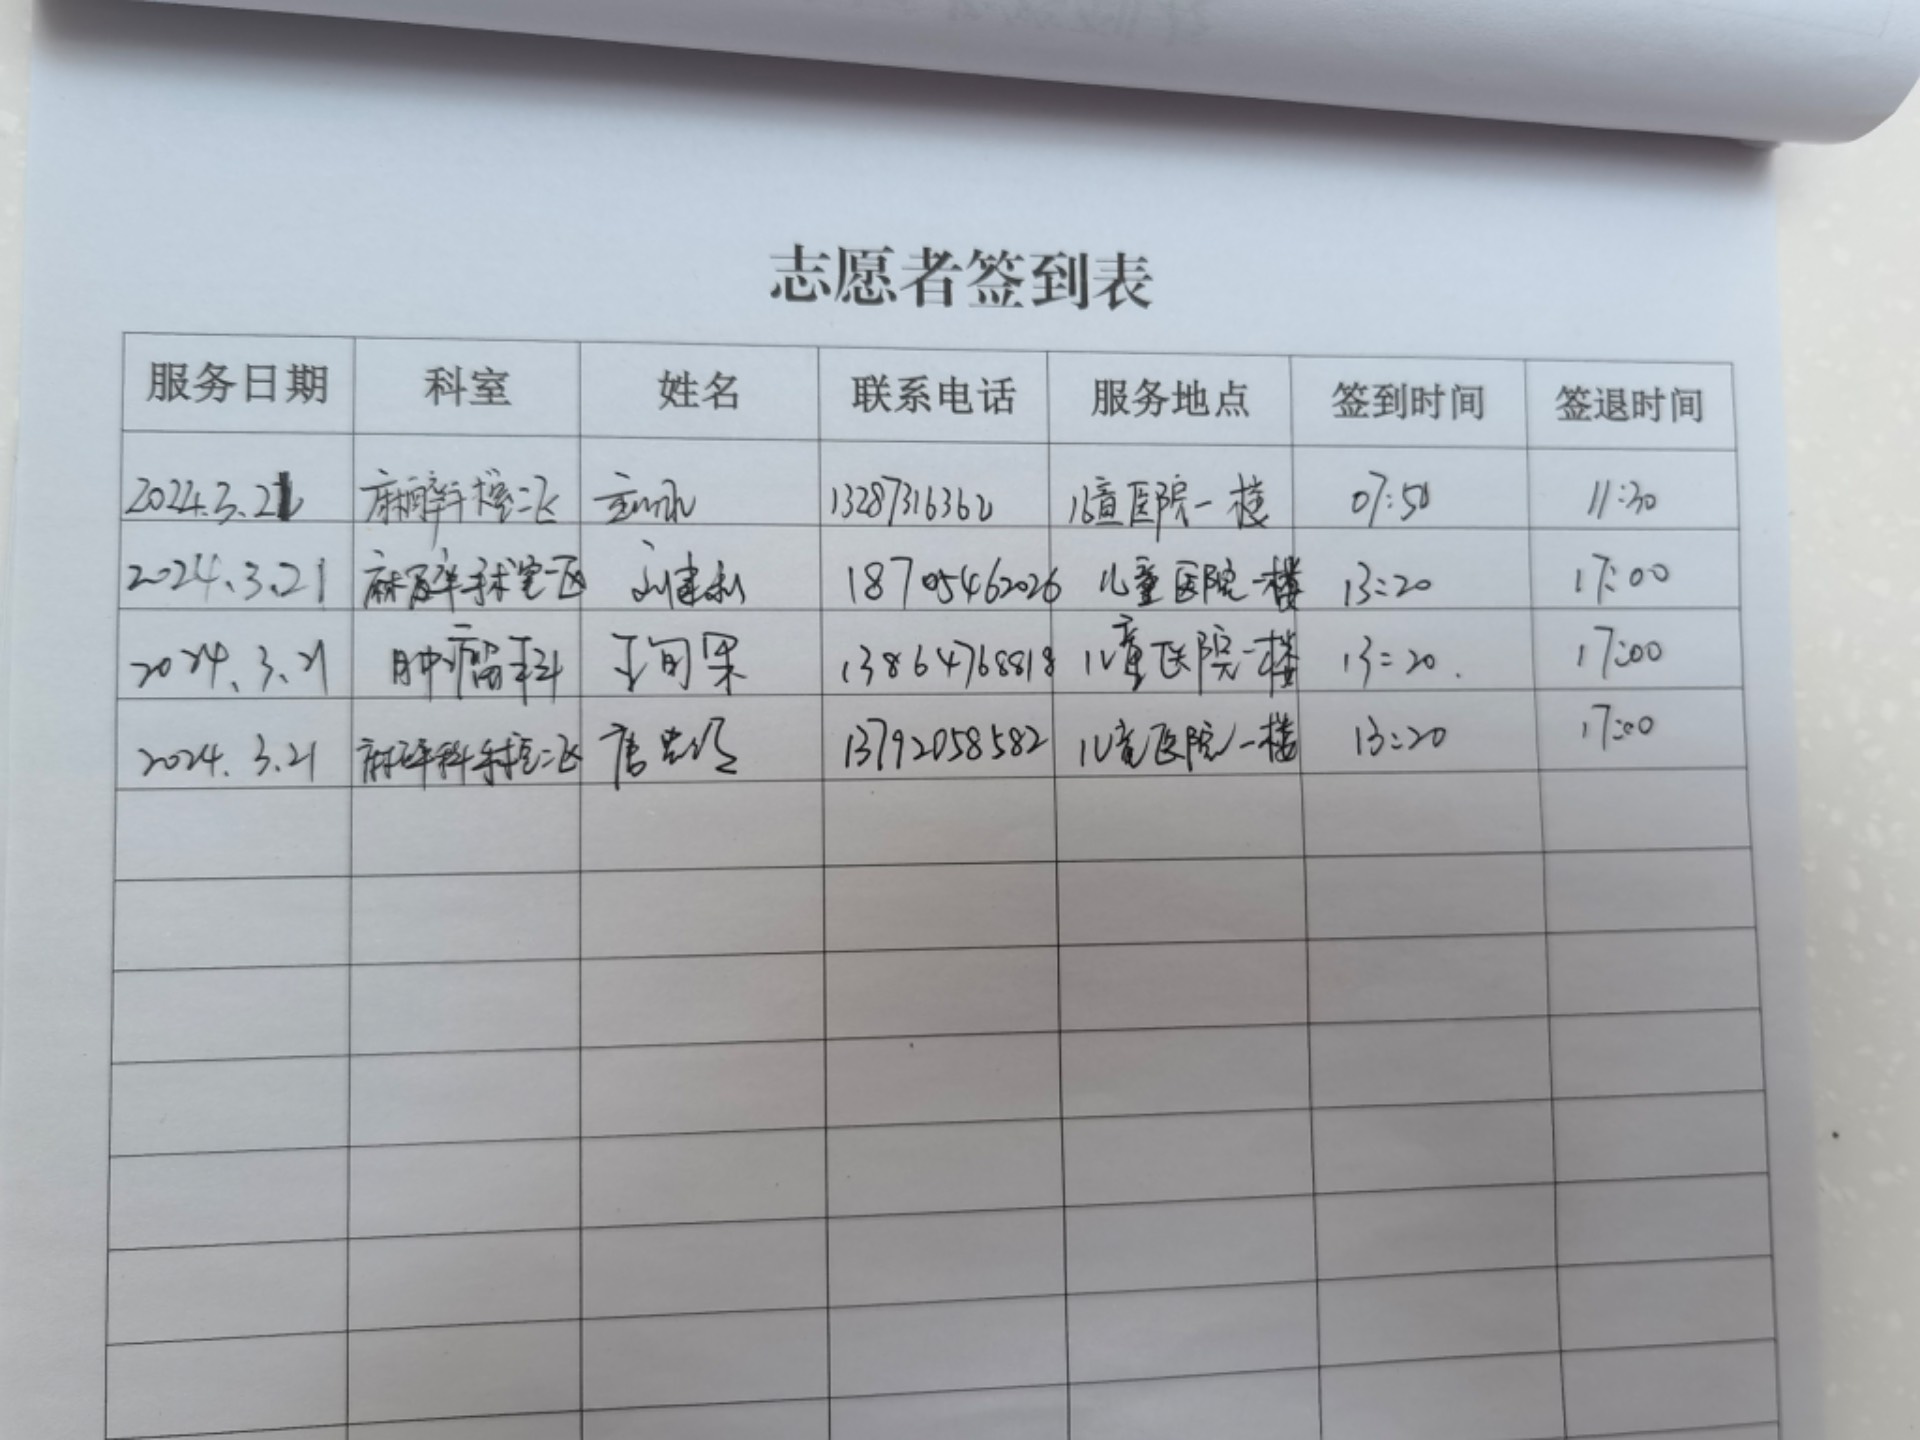 志愿者签到表
服务日期 科室 姓名 联系电话 服务地点 签到时间 签退时间
2024.3.21 麻醉手术室二区 13287316362 儿童医院一楼 07:50 11:30
2024.3.21 麻醉手术室一区 刘建利 18705462026 儿童医院一楼 13:20 17:00
2024.3.21 肿瘤科 王旬果 13864768818 儿童医院一楼 13:20. 17:00
2024.3.21 麻醉科手术室二区 唐 13792058582 儿童医院一楼 13:20 17:00